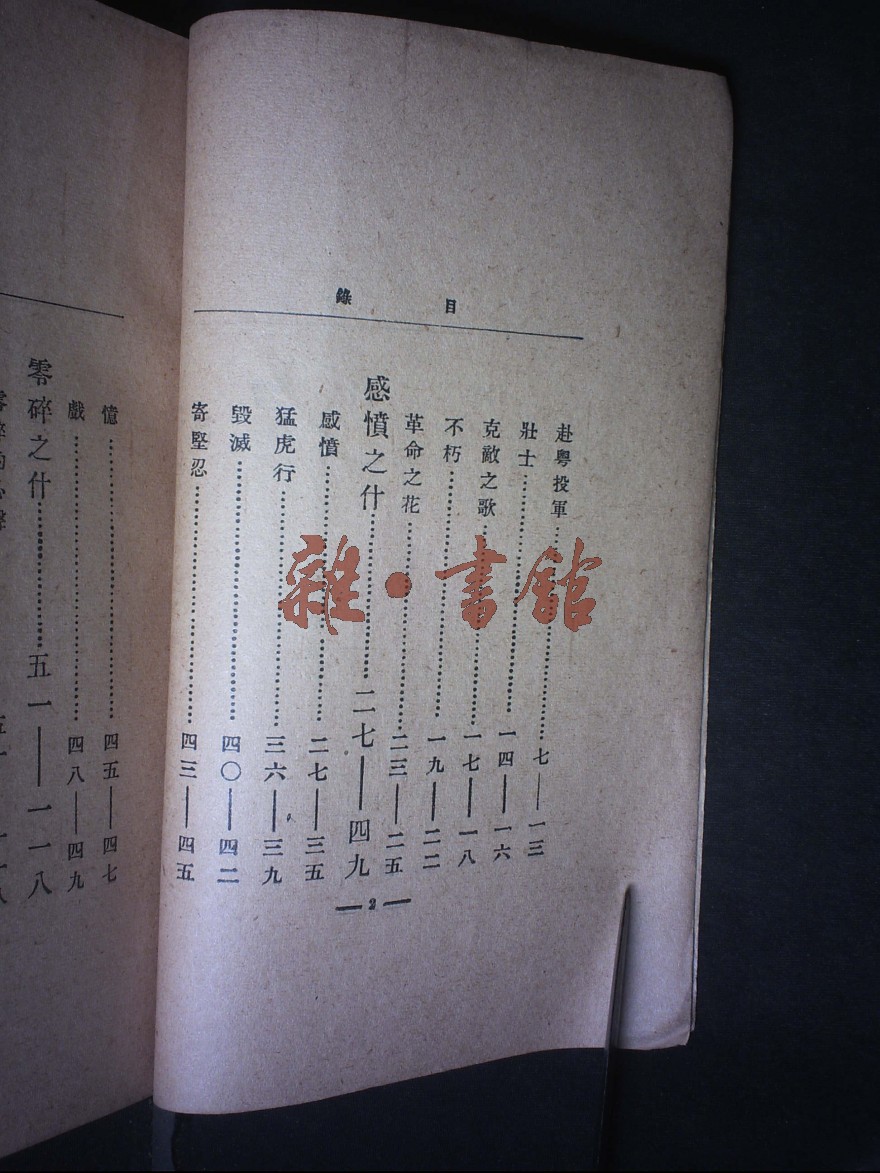 目錄
赴粵投軍……七——一三
壯士……一四——一六
克敵之歌……一七——一八
不朽……一九——二二
革命之花……二三——二五
感憤之什……二七——四九
感憤……二七——三五
猛虎行……三六——三九
毀滅……四〇——四二
寄堅忍……四三——四五
— 2 —
憶……四五——四七
戲……四八——四九
零碎之什……五一——一一八
雜·書館